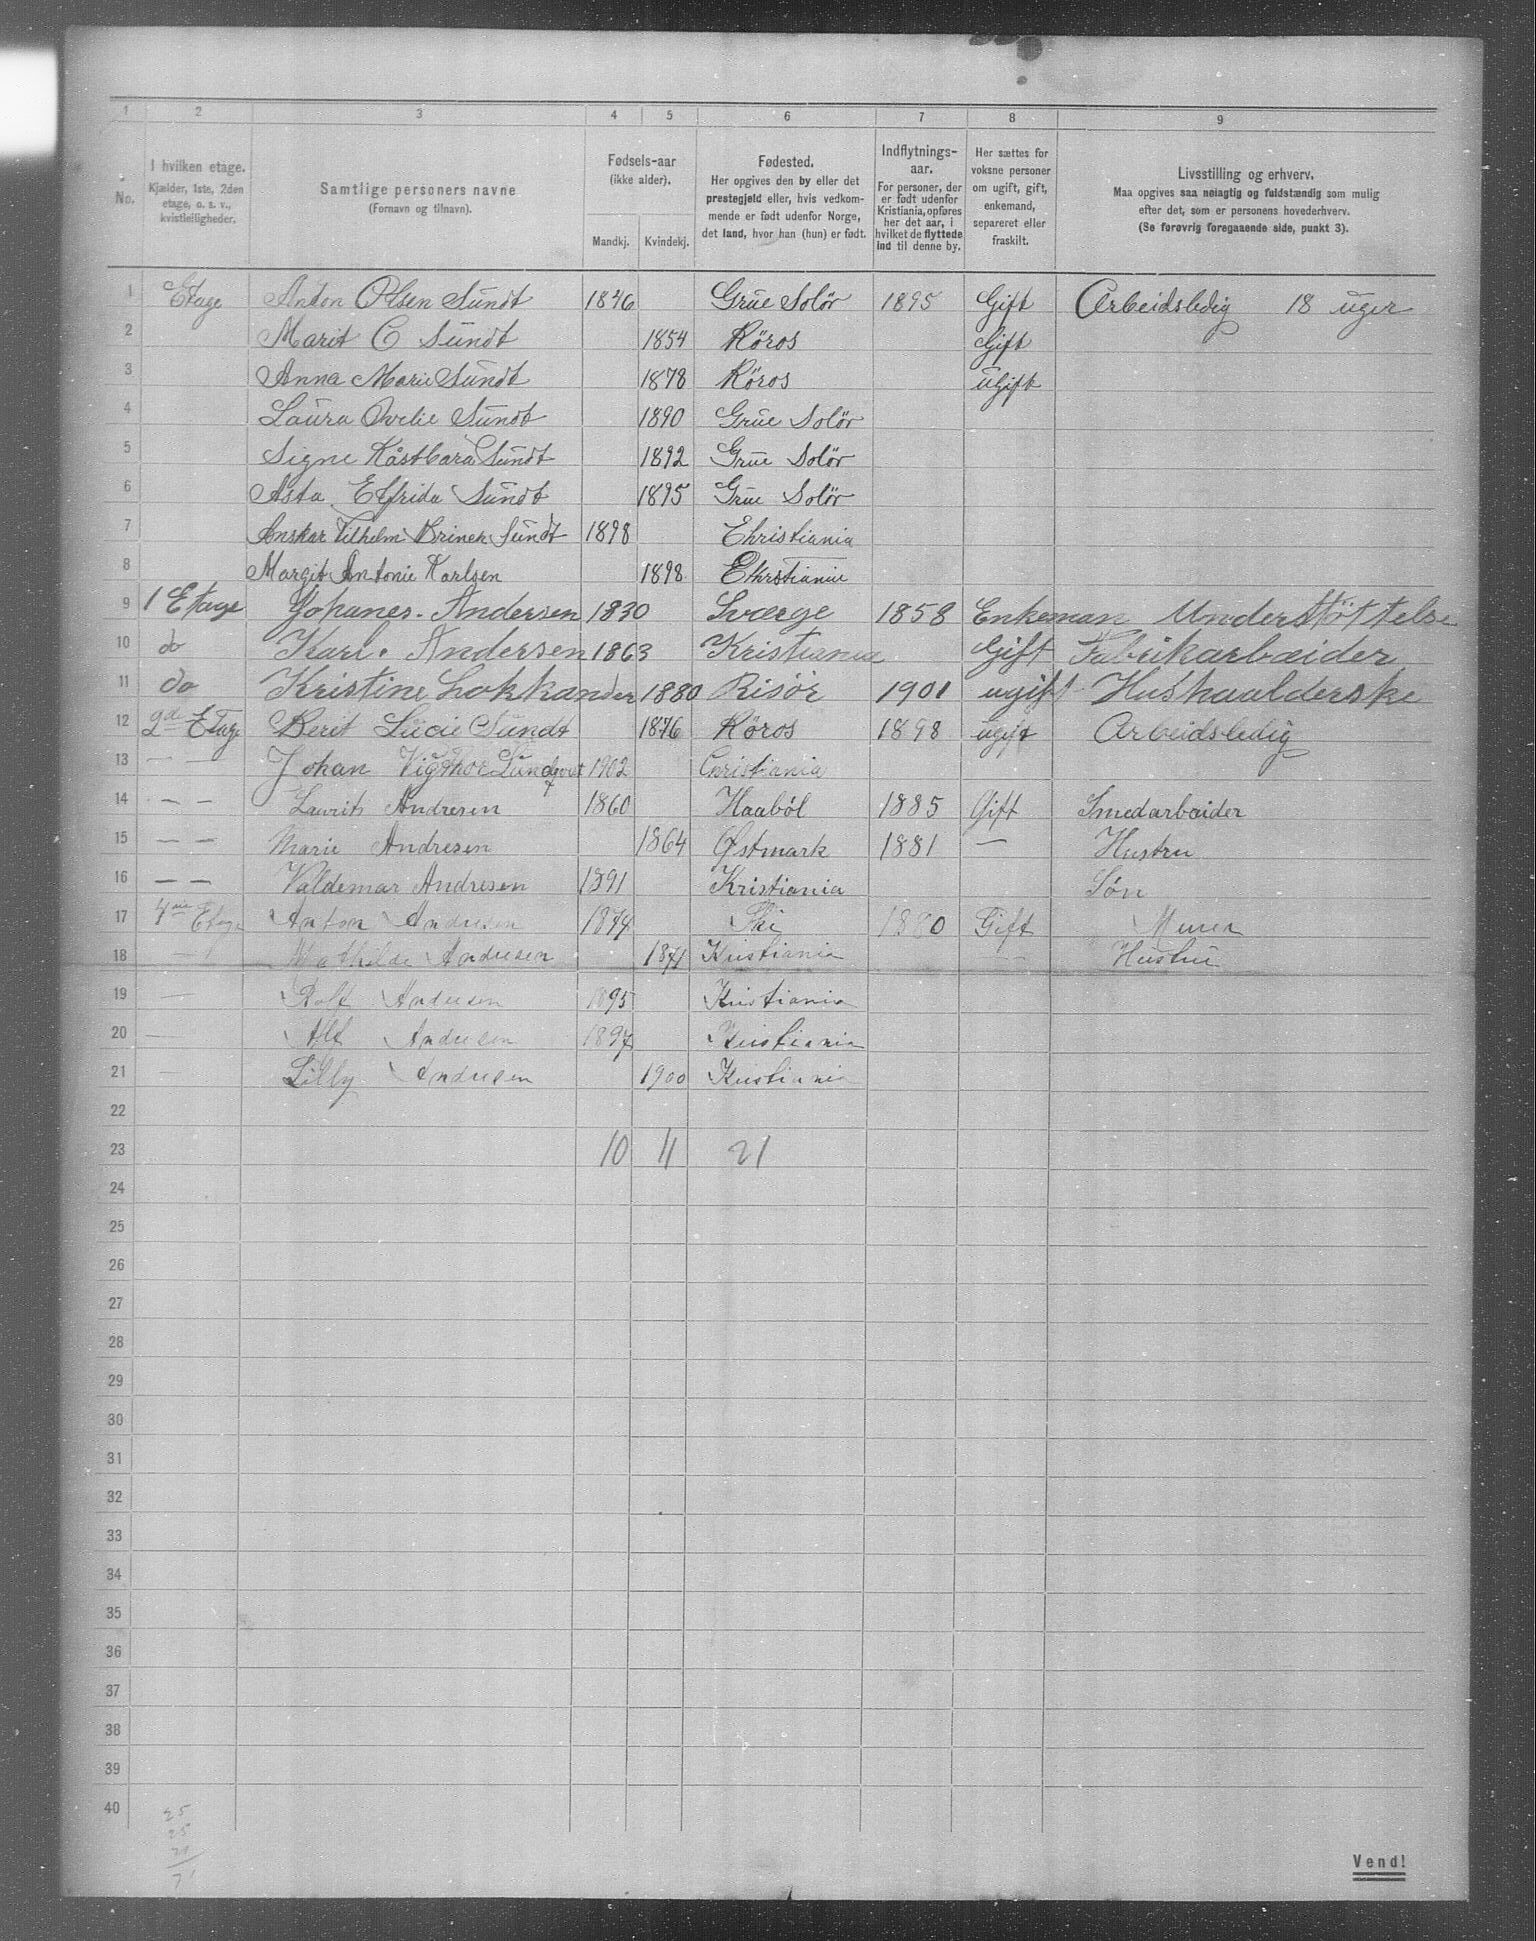 1 2 3 4 5 6 7 8 9
No.
I hvilken etage.
Kjælder, 1ste, 2den
etage, o. s. v.,
kvistleiligheder.
Samtlige personers navne
(Fornavn og tilnavn).
Fødsels-aar
(ikke alder).
Mandkj. Kvindekj.
Fødested.
Her opgives den by eller det
prestegjeld eller, hvis vedkom-
mende er født udenfor Norge,
det land, hvor han (hun) er født.
Indflytnings-
aar.
For personer, der
er født udenfor
Kristiania, opføres
her det aar, i
hvilket de flyttede
ind til denne by.
Her sættes for
voksne personer
om ugift, gift,
enkemand,
separeret eller
fraskilt.
Livsstilling og erhverv.
Maa opgives saa nøiagtig og fuldstændig som mulig
efter det, som er personens hovederhverv.
(Se forøvrig foregaaende side, punkt 3).
1 Etage Anton Olsen Sundt 1846 Grue Solör 1895 Gift Arbeidsledig 18 uger
2 Marit C Sundt 1854 Röros Gift
3 Anna Marie Sundt 1878 Röros uGift
4 Laura Ovelie Sundt 1890 Grue Solör
5 Signe Sundt 1892 Grue Solör
6 Asta Elfrida Sundt 1895 Grue Solör
7 Anskar Vilhelm Sundt 1898 Christiania
8 Margit Antonie Karlsen 1898 Chrstiania
9 1 Etage Johanes. Andersen 1830 Sværge 1858 Enkeman Understöttelse
10 do Karl. Andersen 1863 Kristiania Gift Fabrikarbæider
11 do Kristine Lokkander 1880 Risör 1901 ugift Hushaalderske
12 2d Etage Berit Lucie Sundt 1876 Röros 1898 ugift Arbeidsledig
13 — — Johan Vigthor Lundqvist 1902 Christiania
14 — — Laurits Andresen 1860 Haaböl 1885 Gift Smedarbeider
15 — — Marie Andresen 1864 Østmark 1881 — Hustru
16 — — Valdemar Andresen 1891 Kristiania Søn
17 Etage Anton Andresen 1874 Ski 1880 Gift Murer
18 — Mathilde Andresen 1871 Kristiania — Hustru
19 — Rolf Andresen 1895 Kristiania
20 — Alf Andresen 1897 Kristiania
21 — Lilly Andresen 1900 Kristiani
22
23 10 11 21
24
25
26
27
28
29
30
31
32
33
34
35
36
37
38
39
40
25
25
21
71
Vend!